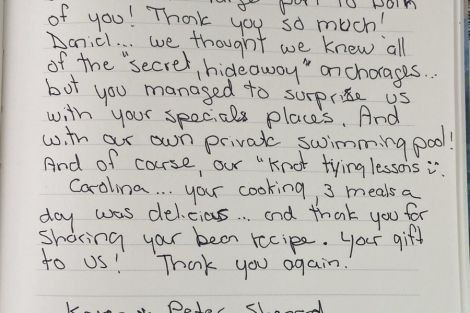 of you! Thank you so much!
Daniel... we thought we knew all
of the "secret, hideaway" anchorages...
but you managed to surprise us
with your special places. And
with our own private swimming pool!
And of course, our "Knot tying lessons ü.
Carolina... your cooking, 3 meals a
day was delicious... and thank you for
sharing your bean recipe. Your gift
to us! Thank you again.
Peter